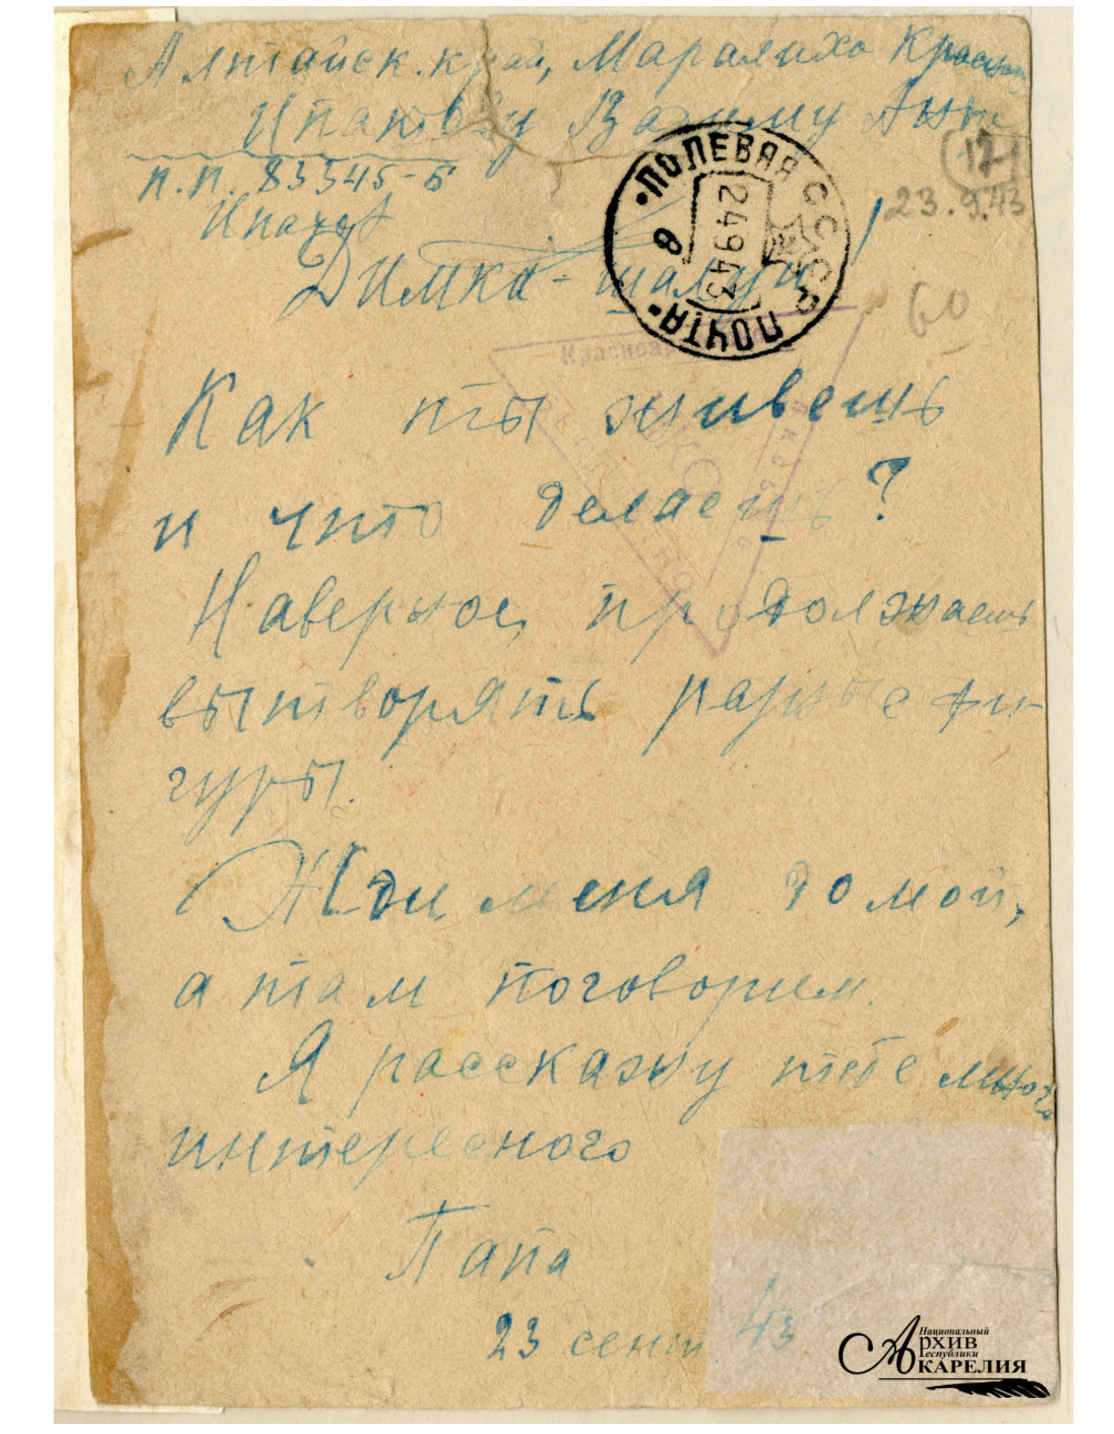 Алтайск. край, Маралиха Красно
Ипатову Вадиму Анат
п.п. 83345-Б
(17)
23.9.43
ПОЛЕВАЯ ПОЧТА СССР
24 9 43
8
Димка-шалун!
60
Красноар
Как ты живешь
и что делаешь?
Наверное, продолжаешь
вытворять разные фи-
гуры.
Жди меня домой,
а там поговорим.
Я расскажу тебе много
интересного
Папа
23 сент. 43
Национальный
АРХИВ
Республики
КАРЕЛИЯ